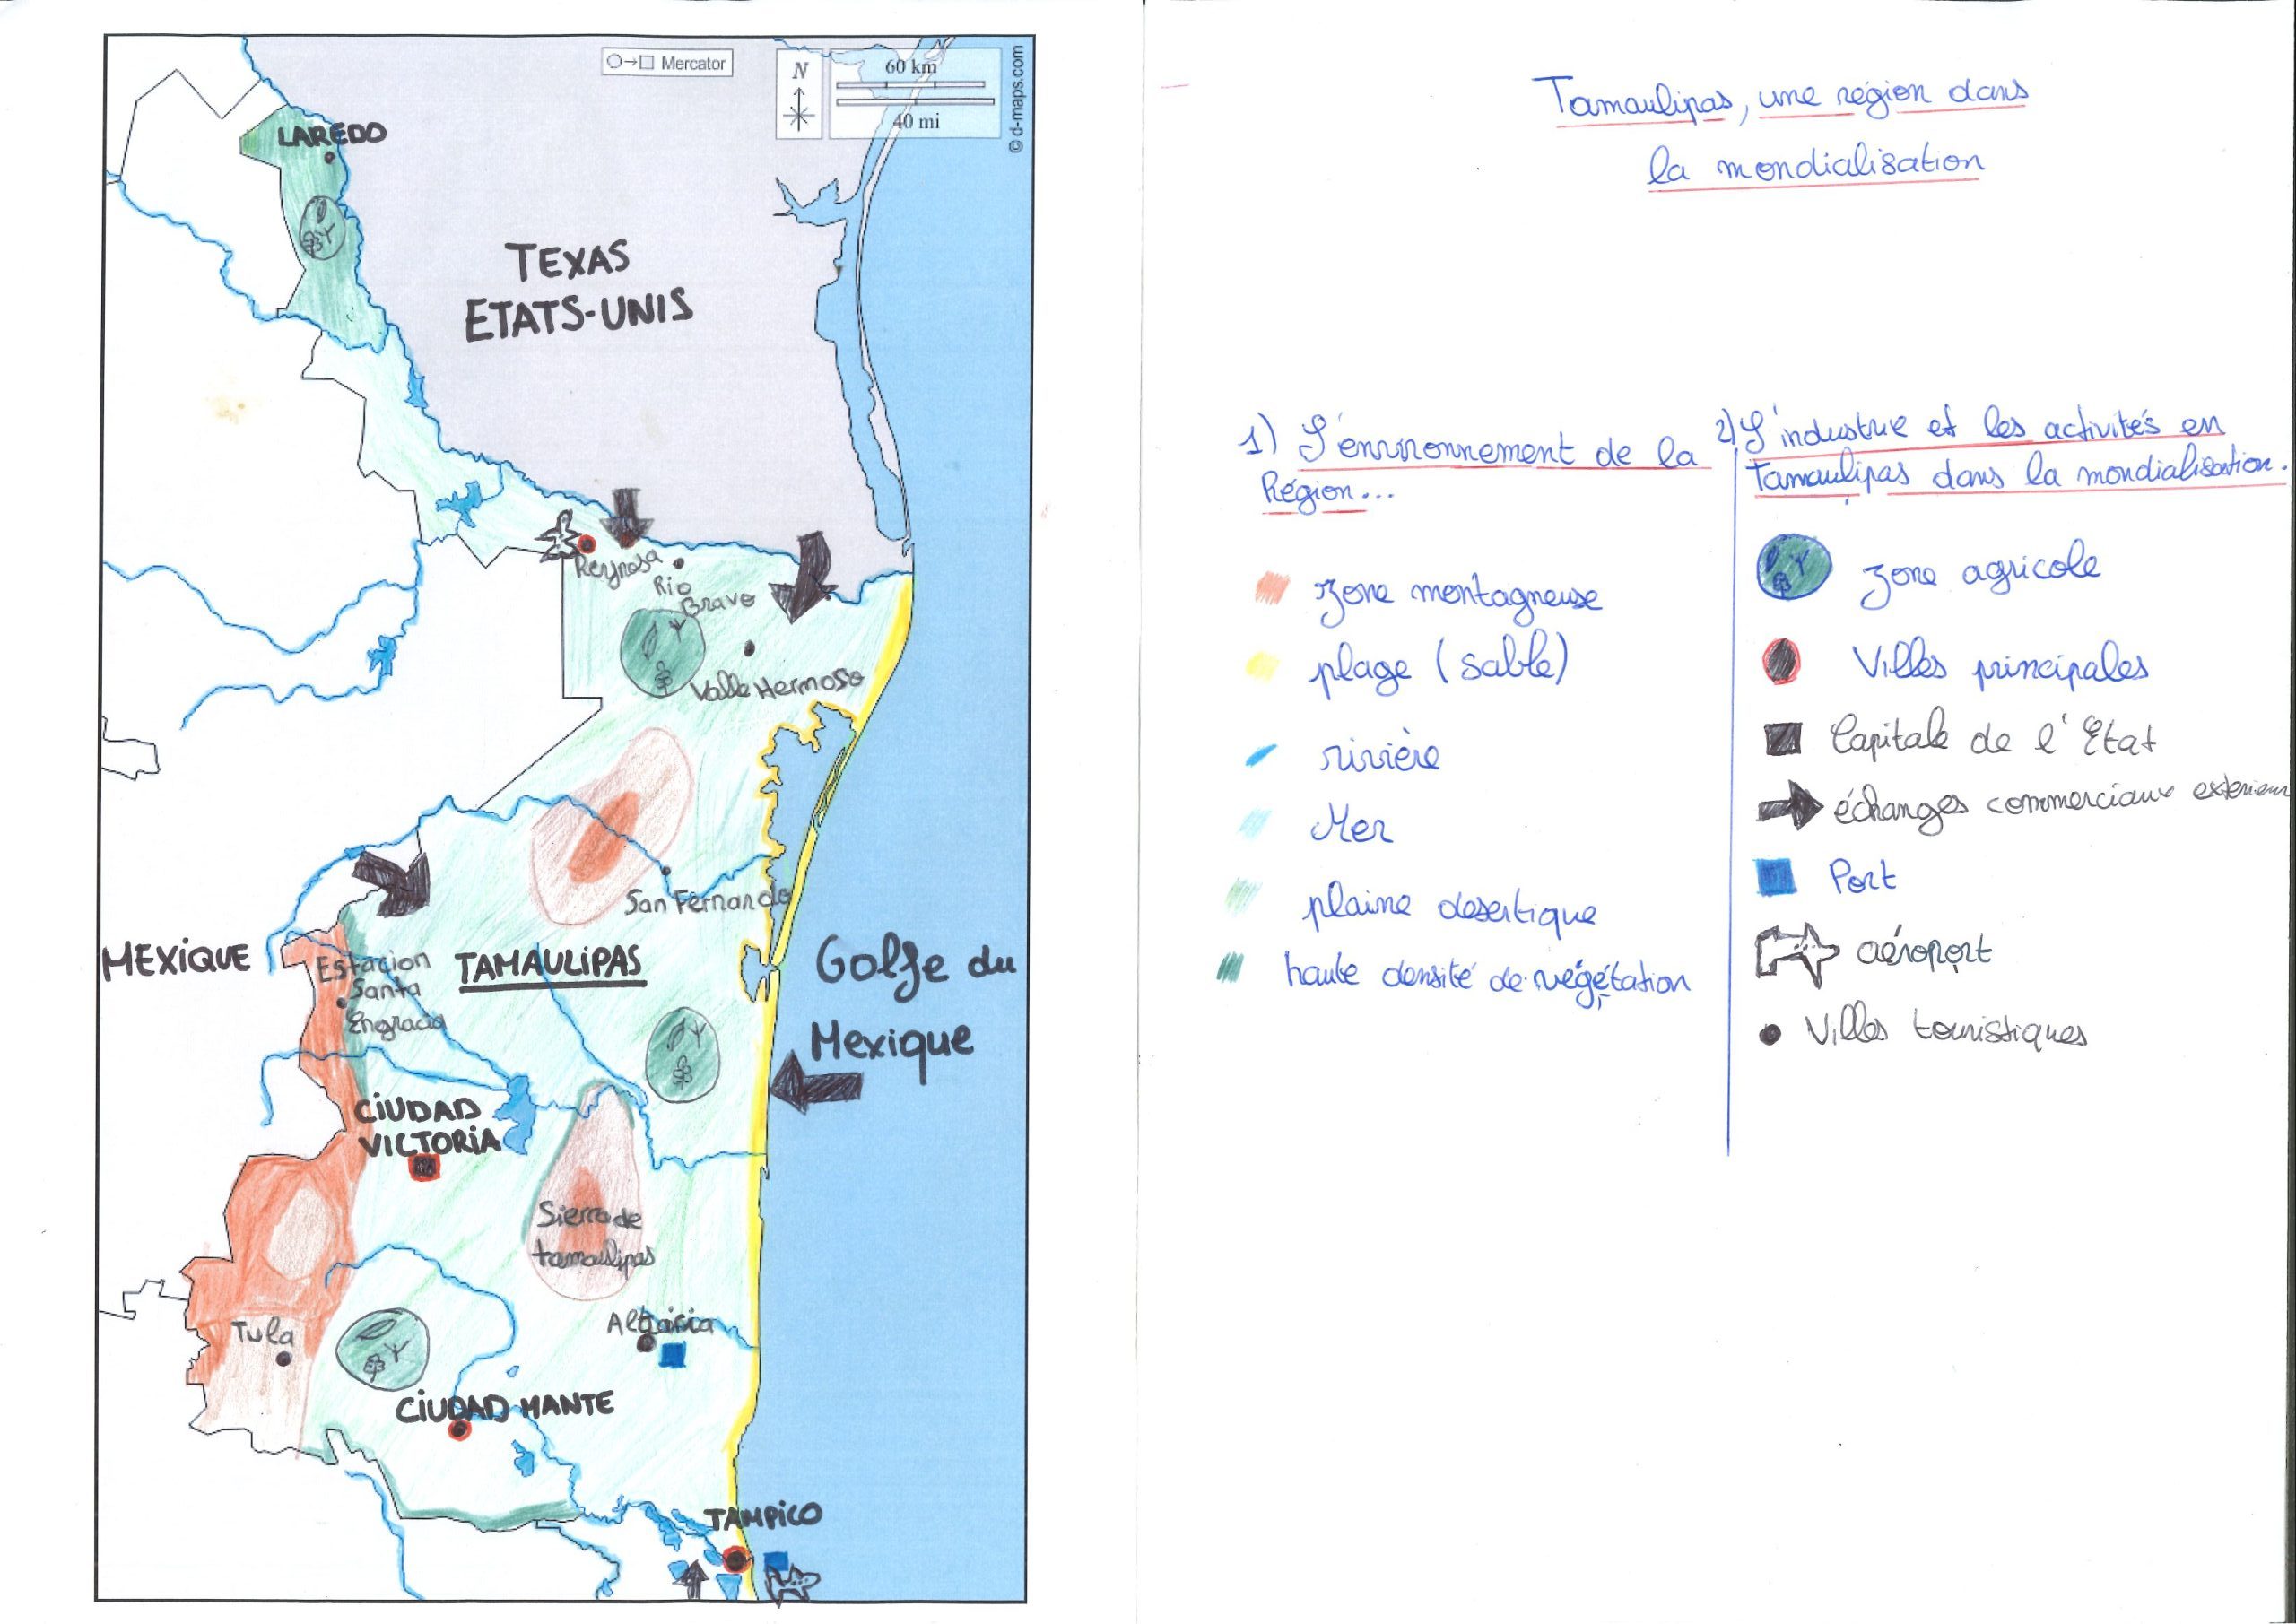 Mercator
N
60 km
40 mi
© d-maps.com
LAREDO
TEXAS
ETATS-UNIS
Reynosa
Rio
Bravo
Valle Hermoso
San Fernando
MEXIQUE
Estacion
Santa
Engracia
TAMAULIPAS
Golfe du
Mexique
CIUDAD
VICTORIA
Sierra de
tamaulipas
Tula
CIUDAD MANTE
TAMPICO
Tamaulipas, une région dans
la mondialisation
1) L'environnement de la
Région...
zone montagneuse
plage (sable)
rivière
Mer
plaine desertique
haute densité de végétation
2) L'industrie et les activités en
Tamaulipas dans la mondialisation.
zone agricole
Villes principales
Capitale de l'Etat
échanges commerciaux exterieur
Port
aéroport
Villes touristiques